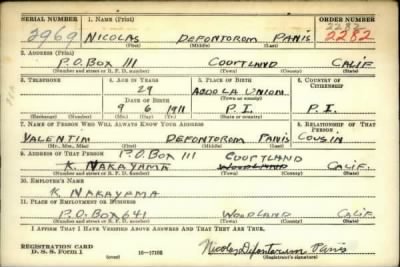 SERIAL NUMBER 1. NAME (Print) ORDER NUMBER
2282
2969 NICOLAS DEFONTOROM PANIS 2282
(First) (Middle) (Last)
2. ADDRESS (Print)
P.O. BOX 111 COURTLAND CALIF.
(Number and street or R. F. D. number) (Town) (County) (State)
3. TELEPHONE 4. AGE IN YEARS 5. PLACE OF BIRTH 6. COUNTRY OF CITIZENSHIP
29 LA UNION
DATE OF BIRTH (Town or county)
9 6 1911 P.I. P.I.
(Exchange) (No.) (Mo.) (Day) (Yr.) (State or country)
7. NAME OF PERSON WHO WILL ALWAYS KNOW YOUR ADDRESS 8. RELATIONSHIP OF THAT PERSON
VALENTIM DEFONTOROM PANIS COUSIN
(Mr., Mrs., Miss) (First) (Middle) (Last)
9. ADDRESS OF THAT PERSON P.O. BOX 111 COURTLAND
K. NAKAYAMA WOODLAND CALIF.
(Number and street or R. F. D. number) (Town) (County) (State)
10. EMPLOYER'S NAME
K. NAKAYAMA
11. PLACE OF EMPLOYMENT OR BUSINESS
P.O. BOX 641 WOODLAND CALIF.
(Number and street or R. F. D. number) (Town) (County) (State)
I AFFIRM THAT I HAVE VERIFIED ABOVE ANSWERS AND THAT THEY ARE TRUE.
REGISTRATION CARD
D. S. S. Form 1 (over) 16—17105 Nicolas Defontorum Panis
(Registrant's signature)